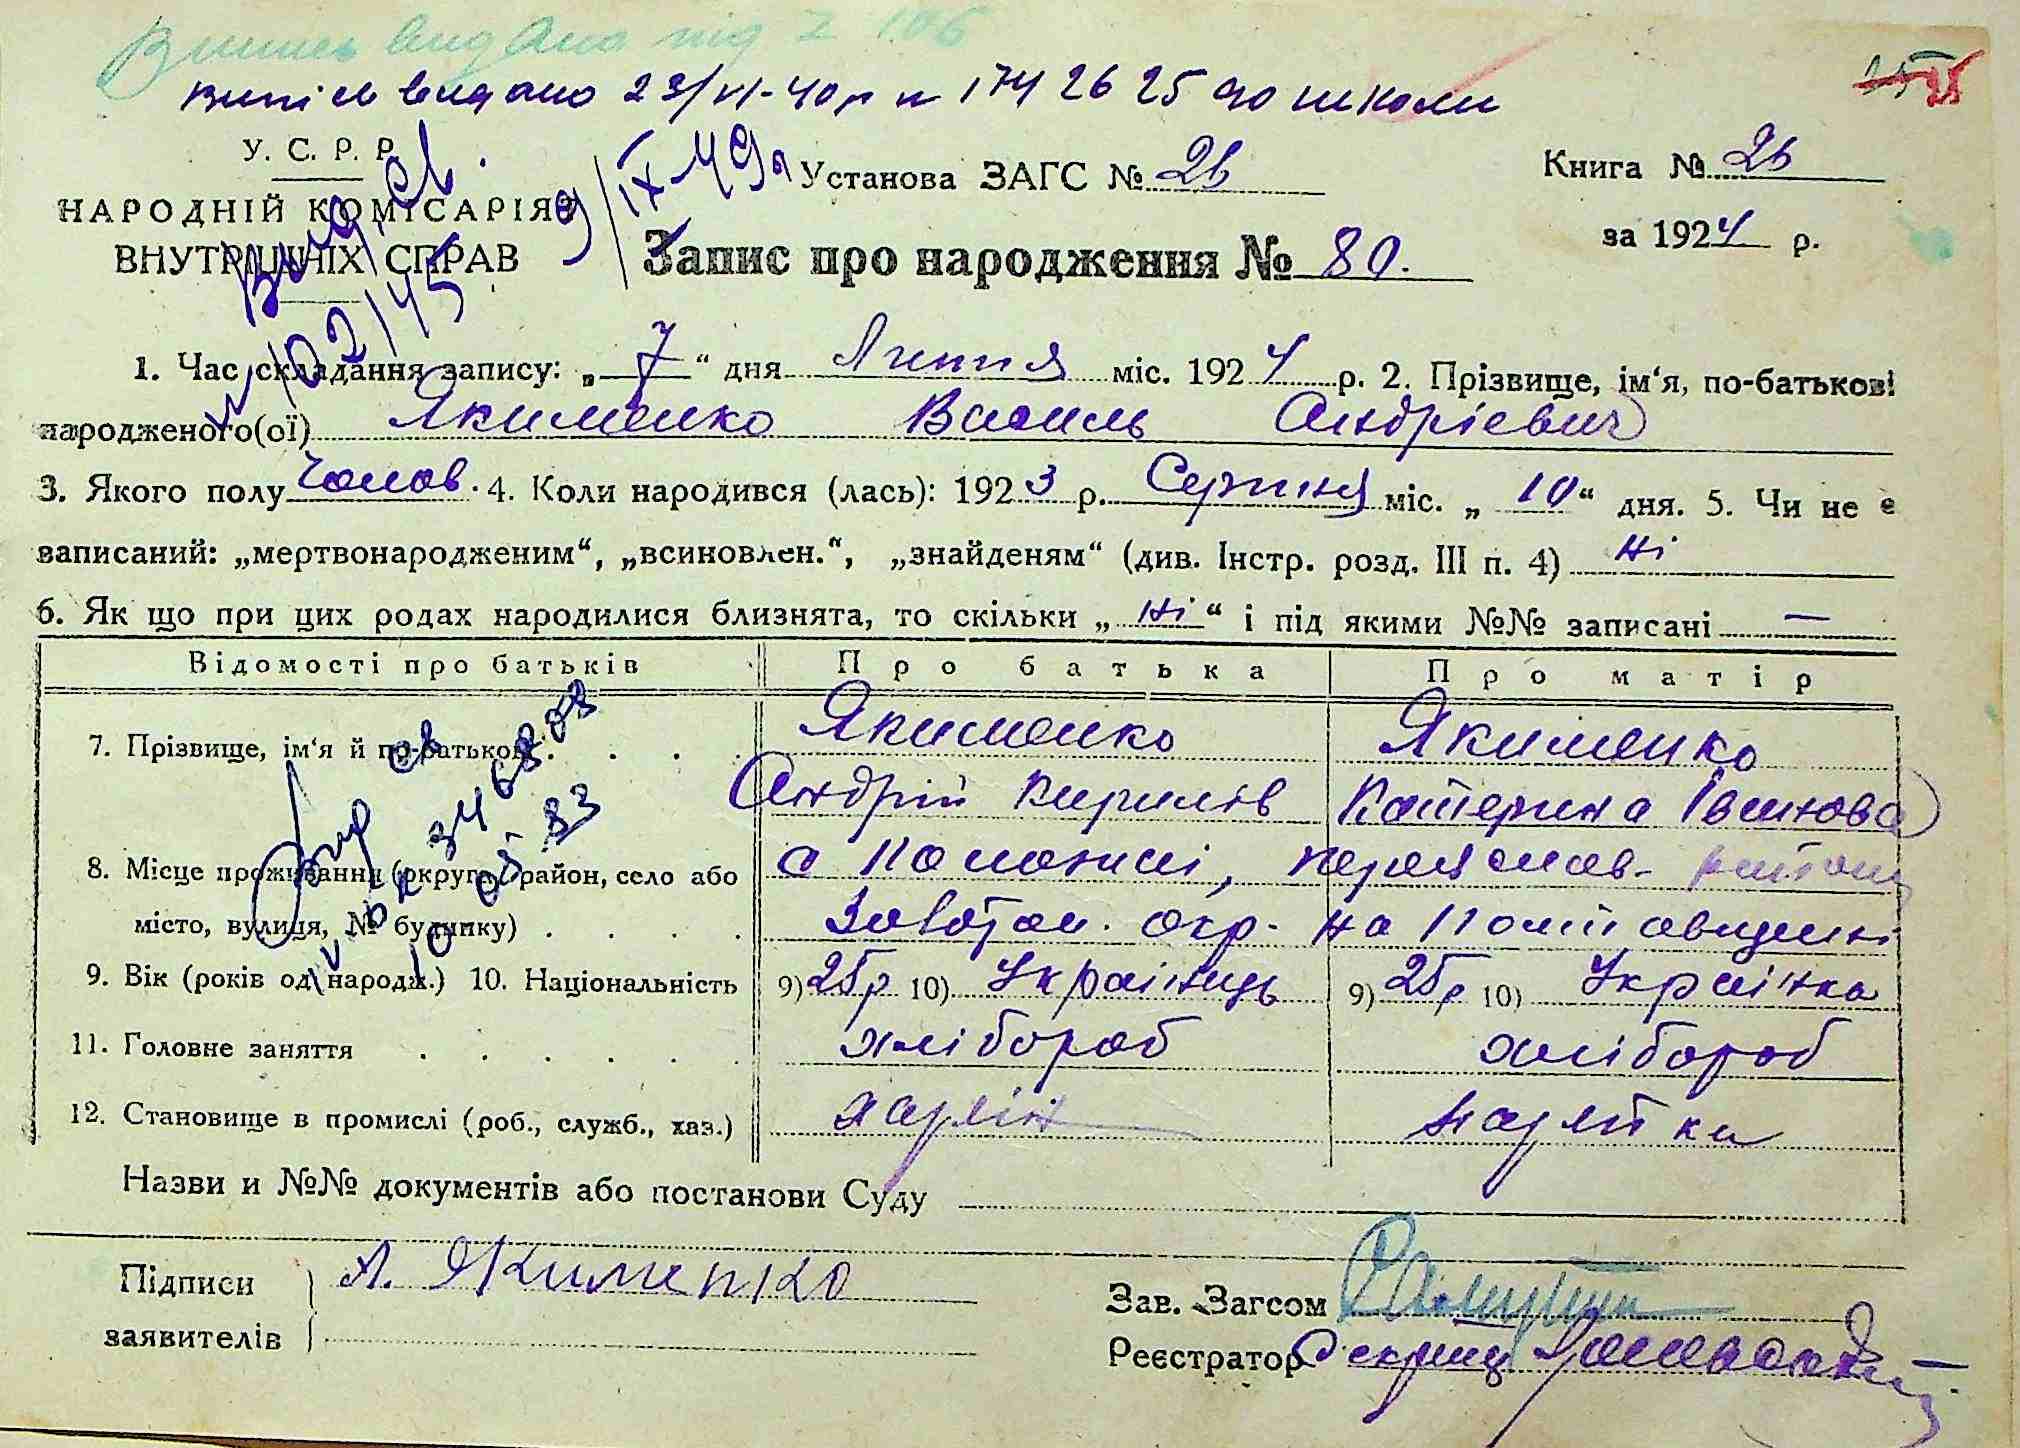 Випись видана під № 106
випись видано 23/VI-40р № 174 26 25 до школи
У. С. Р. Р.
НАРОДНІЙ КОМІСАРІЯТ
ВНУТРІШНІХ СПРАВ
Установа ЗАГС № 2в
Книга № 2в
за 1924 р.
Запис про народження № 80.
Вид. св.
9/IX-49р
1. Час складання запису: „ 7 “ дня Липня міс. 1924 р. 2. Прізвище, ім'я, по-батькові
народженого(ої) Якименко Василь Андрієвич
3. Якого полу чолов. 4. Коли народився (лась): 1923 р. Серпня міс. „ 10 “ дня. 5. Чи не є
записаний: „мертвонародженим“, „всиновлен.“, „знайденям“ (див. Інстр. розд. III п. 4) Ні
6. Як що при цих родах народилися близнята, то скільки „ ні “ і під якими №№ записані —
Відомості про батьків Про батька Про матір
7. Прізвище, ім'я й по-батькові Якименко Якименко
Андрій Кирилів Катерина Іванова
8. Місце проживання (округа, район, село або с Помоклі, Переяслав- району
місто, вулиця, № будинку) Золотон. окр. на Полтавщині
9. Вік (років од народж.) 10. Національність 9) 25р 10) Українець 9) 25р 10) Українка
11. Головне заняття хлібороб хлібороб
12. Становище в промислі (роб., служб., хаз.)
Назви и №№ документів або постанови Суду
Підписи А. Якименко
заявителів
Зав. Загсом
Реєстратор